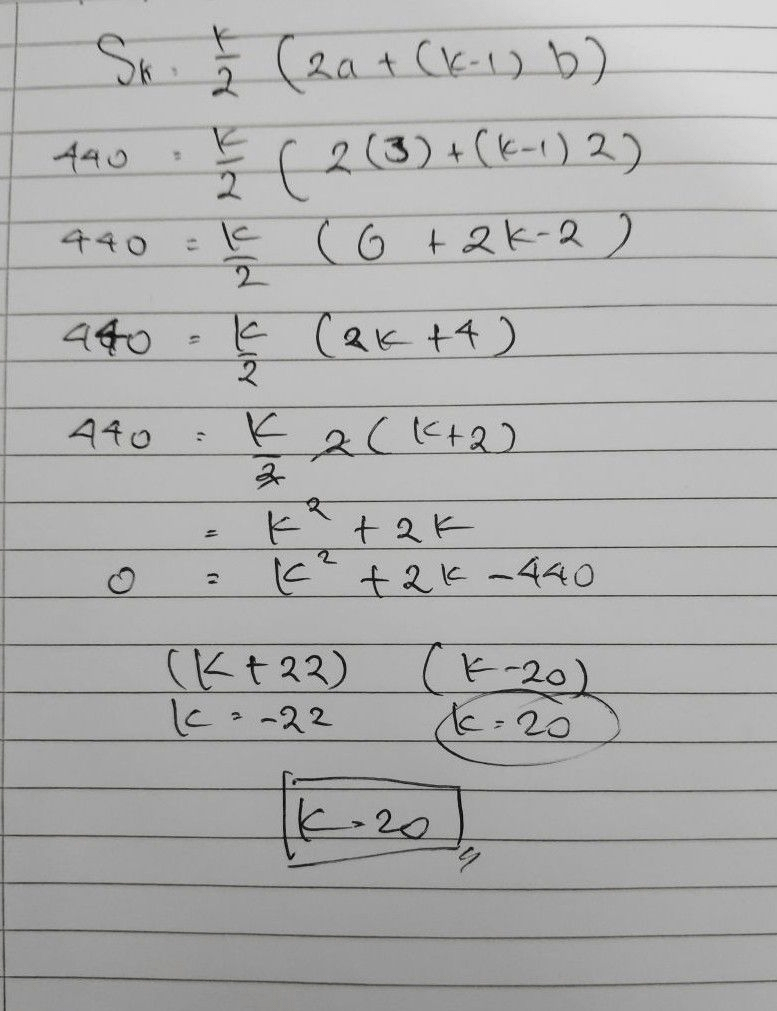 Sk = k/2 (2a + (k-1) b)
440 = k/2 ( 2(3) + (k-1) 2)
440 = k/2 (6 + 2k-2)
440 = k/2 (2k +4)
440 = k/2 2 (k+2)
= k² + 2k
0 = k² + 2k - 440
(k+22) (k-20)
k = -22 k = 20
k = 20